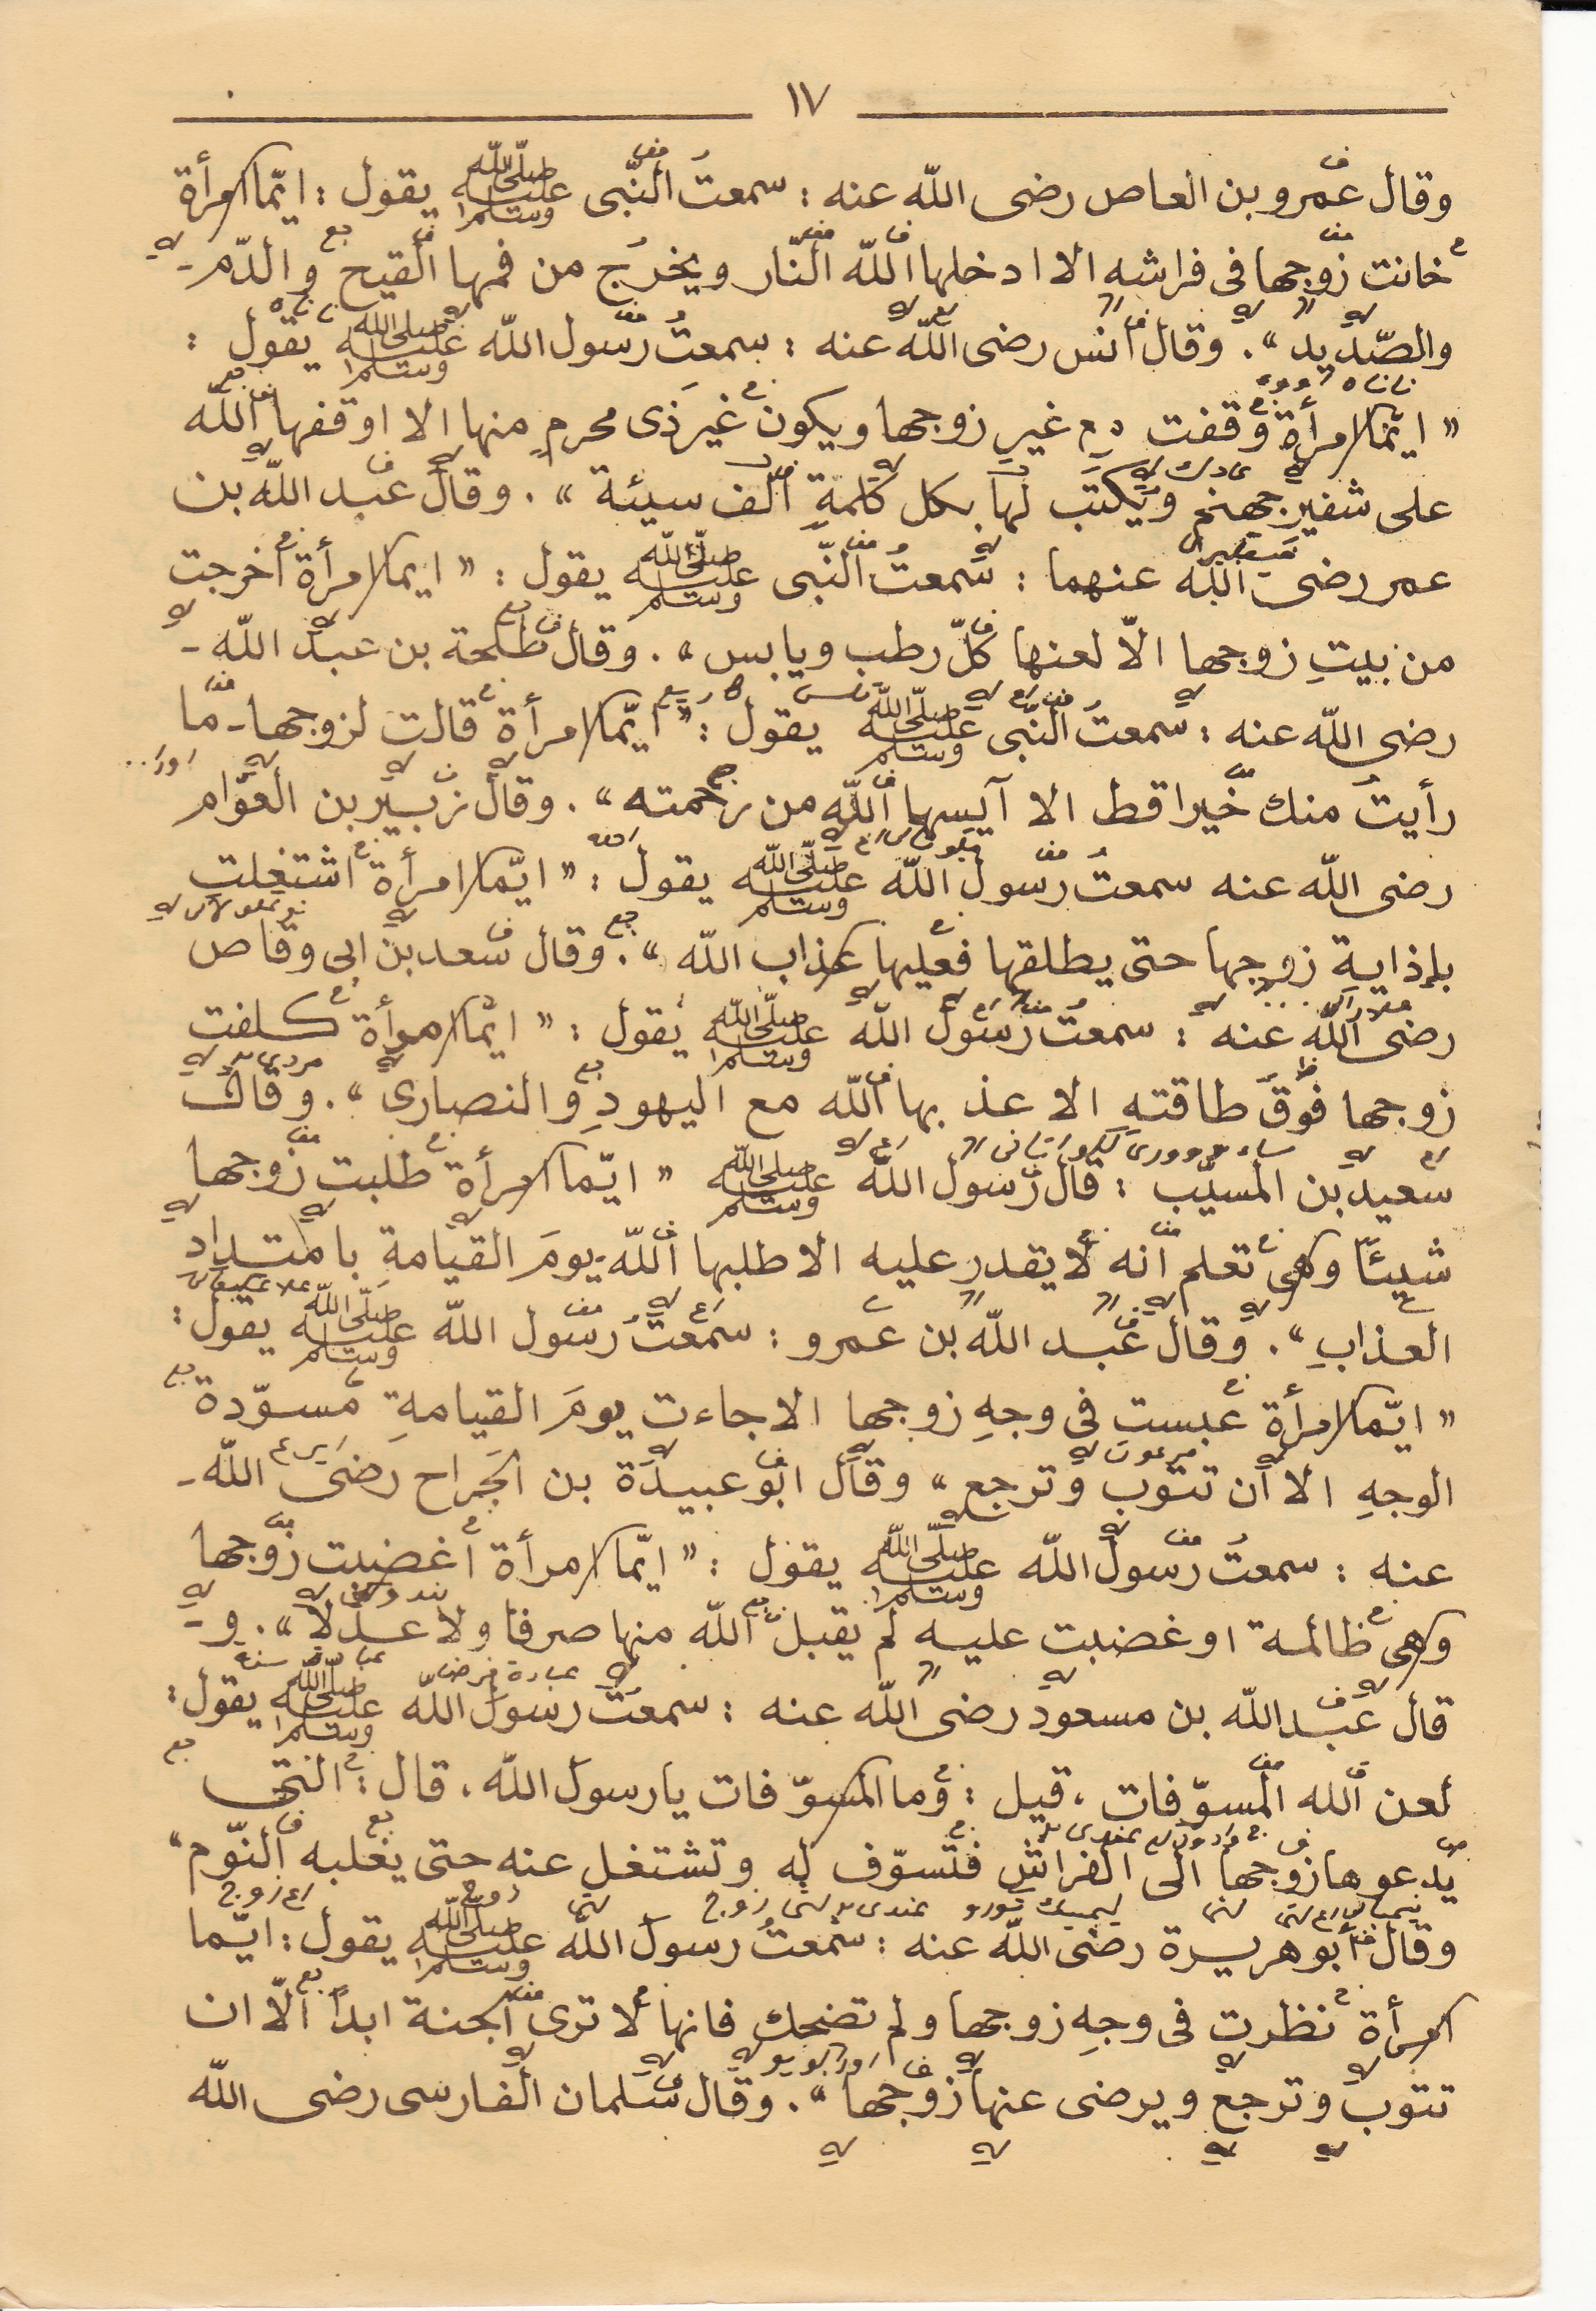 ١٧
وقال عمرو بن العاص رضى اللّه عنه : سمعتُ النّبى صلّى اللّه عليه وسلم يقول : ايّما امرأة
خانت زوجها فى فراشه الا ادخلها اللّه النّار ويخرُج من فمها القيح والدّم -
والصّديد » . وقال انس رضى اللّه عنه : سمعتُ رسول اللّه صلى الله عليه وسلم يقول :
« ايّما امرأة وقفت مع غيرِ زوجها ويكون غيرَ ذى محرمٍ منها الا اوقفها اللّه
على شفير جهنم ويكتب لها بكل كلمةٍ الف سيئة » . وقال عبد اللّه بن
عمر رضى اللّه عنهما : سمعتُ النّبى صلّى اللّه عليه وسلم يقول : « ايما امرأة خرجت
من بيتِ زوجها الاّ لعنها كلّ رطب ويابس » . وقال طلحة بن عبد اللّه -
رضى اللّه عنه : سمعتُ النّبى صلّى اللّه عليه وسلم يقول : « ايّما امرأة قالت لزوجها - ما
رأيتُ منك خيرا قط الا آيسها اللّه من رحمته » . وقال زبير بن العوّام
رضى اللّه عنه سمعتُ رسول اللّه صلّى الله عليه وسلم يقول : « ايّما امرأة اشتغلت
بإذايةِ زوجها حتى يطلقها فعليها عذاب اللّه » . وقال سعد بن ابى وقاص
رضى اللّه عنه : سمعتُ رسول اللّه صلى الله عليه وسلم يقول : « ايّما امرأة كلفت
زوجها فوقَ طاقتهِ الا عذبها اللّه مع اليهودِ والنصارى » . وقال
سعيد بن المسيّب : قال رسول اللّه صلى الله عليه وسلم « ايّما امرأة طلبت زوجها
شيئًا وهى تعلم انه لا يقدر عليه الا طلبها اللّه يومَ القيامةِ بامتداد
العذابِ » . وقال عبد اللّه بن عمرو : سمعتُ رسول اللّه صلّى الله عليه وسلم يقول :
« ايّما امرأة عبست فى وجهِ زوجها الا جاءت يومَ القيامةِ مسوّدة
الوجهِ الا ان تتوب وترجع » وقال ابو عبيدة بن الجراح رضى اللّه -
عنه : سمعتُ رسول اللّه صلّى اللّه عليه وسلم يقول : « ايّما امرأة اغضبت زوجها
وهى ظالمة او غضبت عليه لم يقبل اللّه منها صرفا ولا عدلا » . و -
قال عبد اللّه بن مسعود رضى اللّه عنه : سمعتُ رسول اللّه صلى اللّه عليه وسلم يقول :
لعن اللّه المسوّفات ، قيل : وما المسوّفات يا رسول اللّه ، قال : التى
يدعوها زوجها الى الفراش فتسوّف له وتشتغل عنه حتى يغلبه النّوم »
وقال ابو هريرة رضى اللّه عنه : سمعتُ رسول اللّه صلى اللّه عليه وسلم يقول : ايّما
امرأة نظرت فى وجهِ زوجها ولم تضحك فانها لا ترى الجنة ابدًا الاّ ان
تتوب وترجع ويرضى عنها زوجها » . وقال سلمان الفارسى رضى اللّه